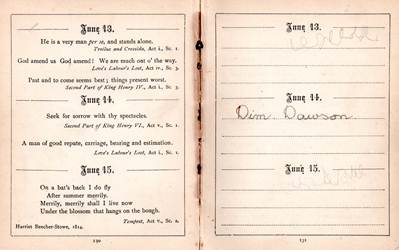 June 13.
He is a very man per se, and stands alone.
Troilus and Cressida, Act i., Sc. 2.
God amend us God amend! We are much out o' the way.
Love's Labour's Lost, Act iv., Sc. 3.
Past and to come seems best; things present worst.
Second Part of King Henry IV., Act i., Sc. 3.
June 14.
Seek for sorrow with thy spectacles.
Second Part of King Henry VI., Act v., Sc. 1.
A man of good repute, carriage, bearing and estimation.
Love's Labour's Lost, Act i., Sc. 1.
June 15.
On a bat's back I do fly
After summer merrily.
Merrily, merrily shall I live now
Under the blossom that hangs on the bough.
Tempest, Act v., Sc. 1.
Harriet Beecher-Stowe, 1812.
130
June 13.
June 14.
Dim. Dawson.
June 15.
131